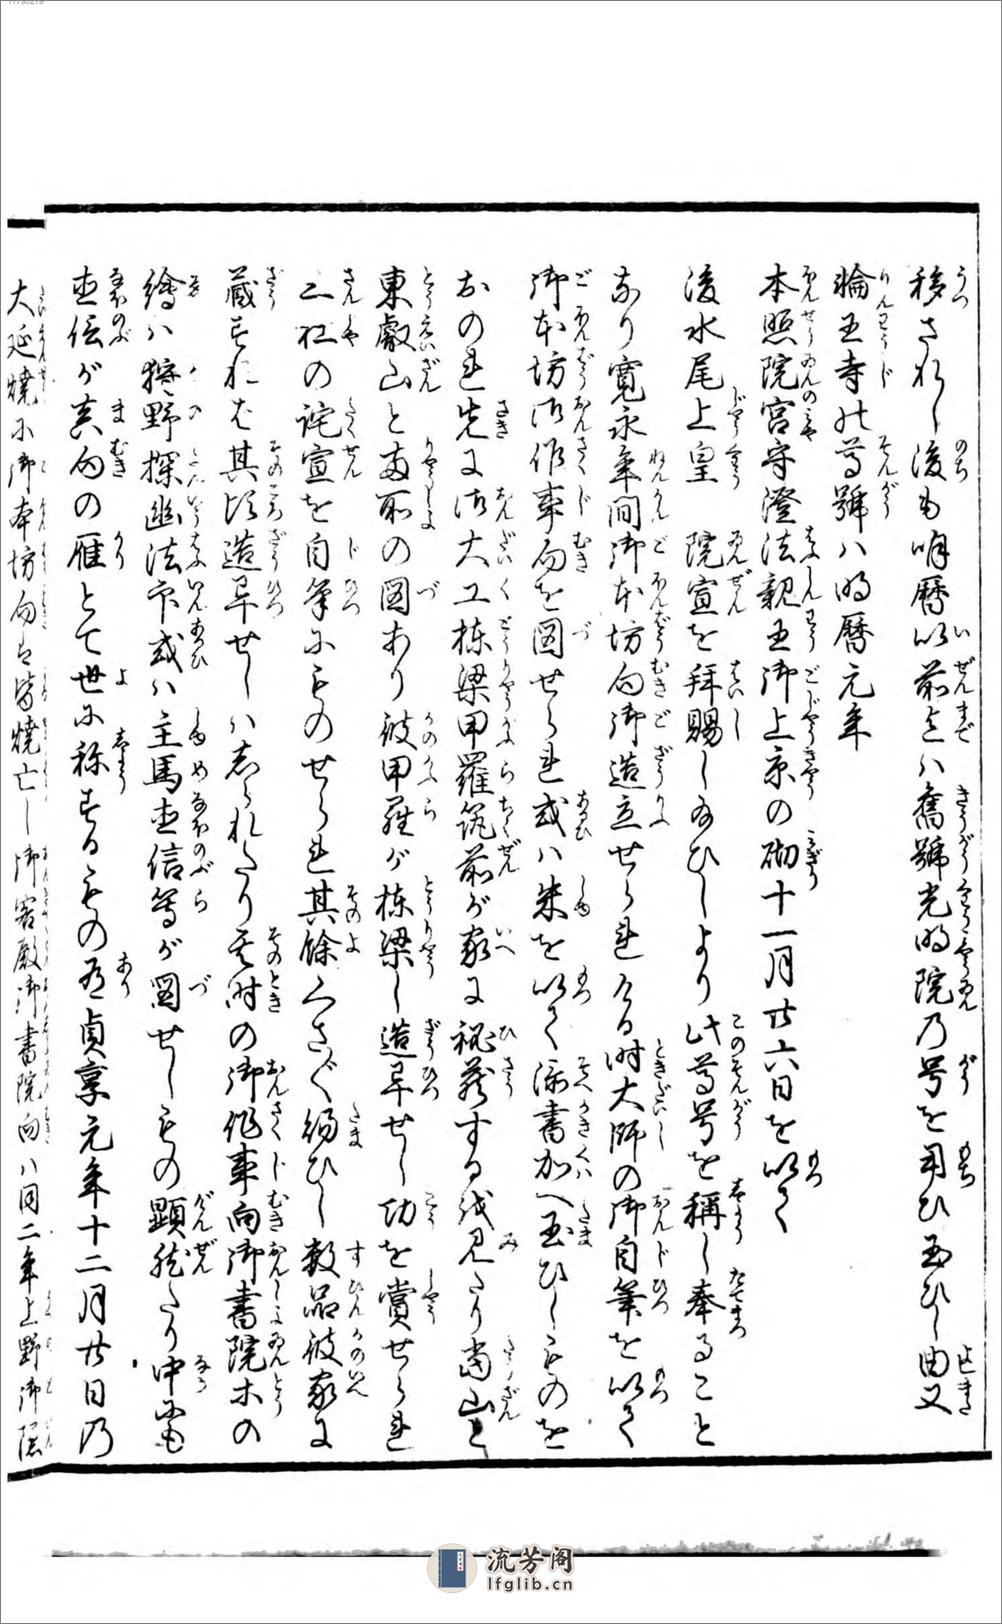 移されし後も明暦以前までハ舊號光明院乃号を用ひ玉ひし由又
輪王寺の尊號ハ明暦元年
本照院宮守澄法親王御上京の砌十一月廿六日を以て
後水尾上皇 院宣を拜賜し玉ひしより此尊号を稱し奉ること
なり寛永年間御本坊向御造立せられける時大師の御自筆を以て
御本坊御作事向を図せられ或ハ朱を以て添書加へ玉ひしものを
おのれ先に御大工棟梁甲良筑前が家に秘藏する を見たり當山と
東叡山と両所の図あり彼甲良が棟梁し造畢せし功を賞せられ
三社の託宣を自筆にものせられ其餘くさぐ賜ひし数品彼家に
藏すれバ其頃造畢せしハしられたり其時の御作事向御書院等の
繪ハ狩野探幽法印或ハ主馬直信等が図せしもの顕然たり中にも
直信が真向の雁とて世に称するもの有貞享元年十二月廿日乃
大延燒に御本坊向も皆燒亡し御客殿御書院向ハ同二年上野御隱
流芳阁
lfglib.cn